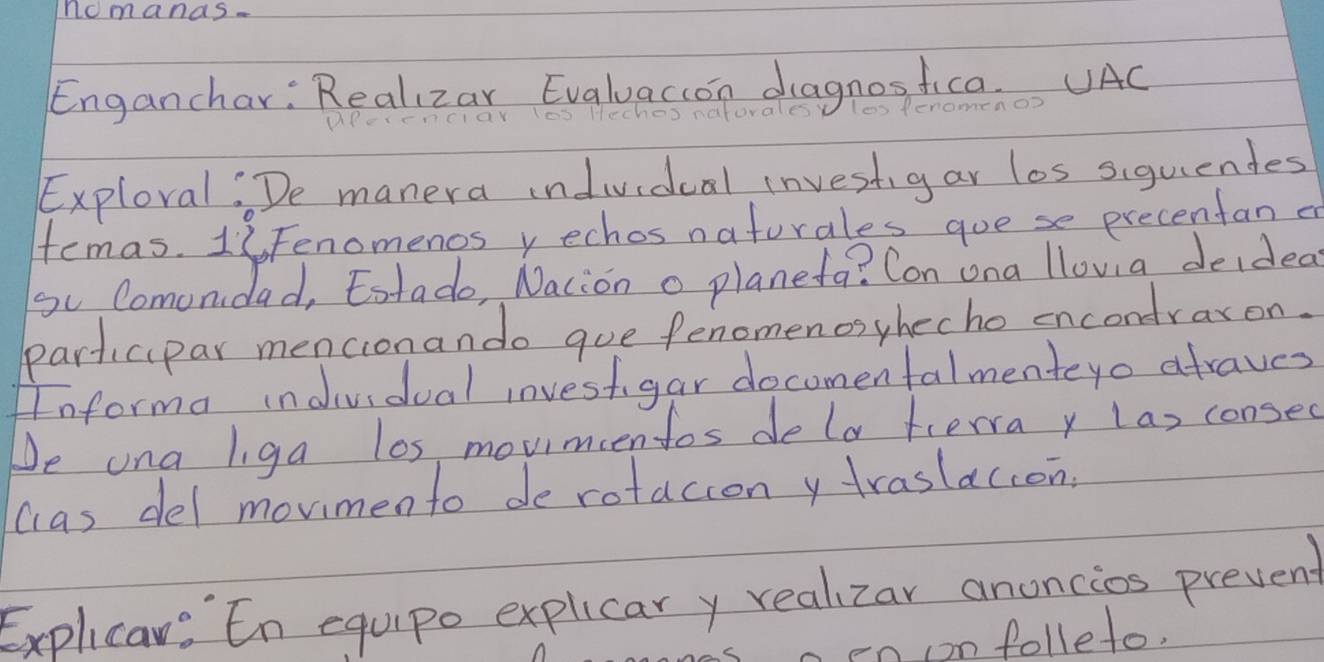 homanas.
Enganchar: Realizar Evaluación diagnostica. UAC
Diferenciar los Hechos naturales y los fenomenos
Exploral: De manera individual investigar los siguientes
temas. 1¿Fenomenos y echos naturales que se precentan en
su Comunidad, Estado, Nación o planeta? Con una lluvia deideas
participar mencionando que fenomenosyhecho encondraron.
Informa individual investigar documentalmenteyo atraves
De una liga los movimientos dela tierra y las consec
cias del movimento de rotacion y traslación.
Explicar: En equipo explicar y realizar anuncios prevent
en un folleto.